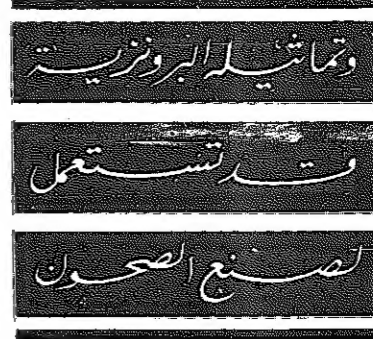 وتماثيله البرونزية
قد تستعمل
لصنع الصحون